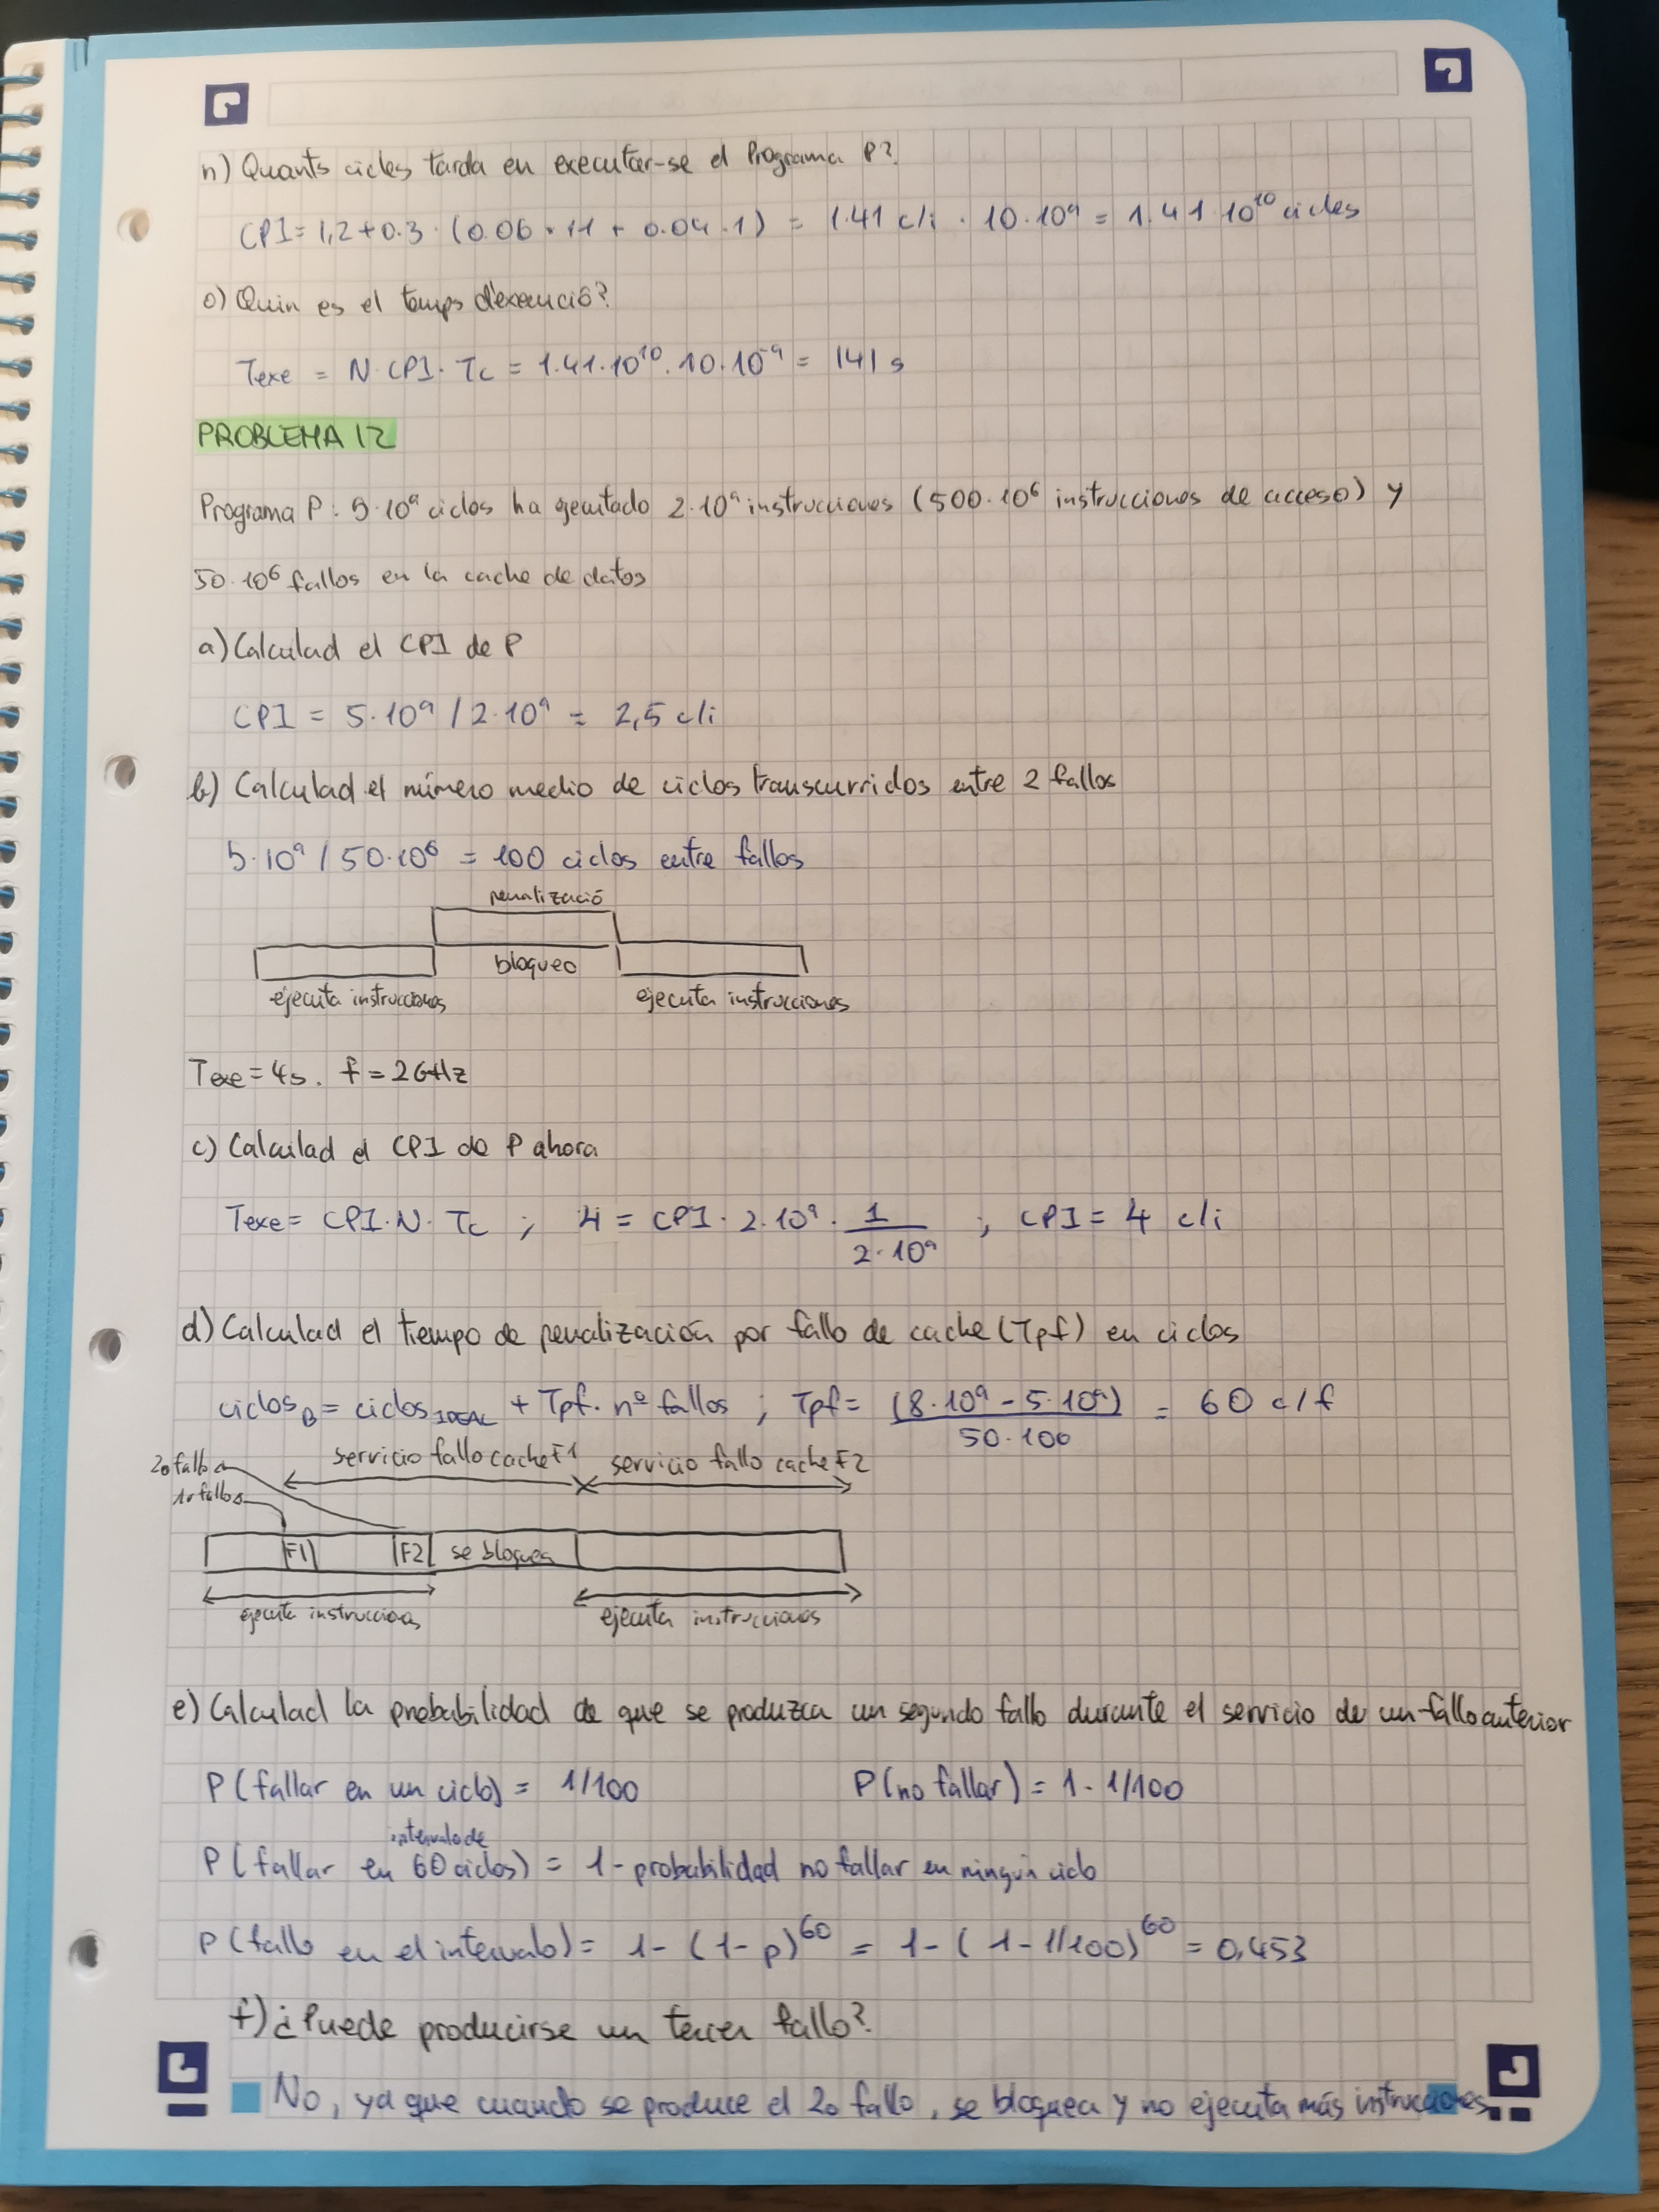 n) Quants cicles tarda en executar-se el Programa P?
CPI = 1,2 + 0.3 · (0.06 · 11 + 0.04 · 1) = 1.41 c/i · 10·10⁹ = 1.41·10¹⁰ cicles
o) Quin es el temps d'execució?
Texe = N·CPI·Tc = 1.41·10¹⁰·10·10⁻⁹ = 141 s
PROBLEMA 12
Programa P: 5·10⁹ ciclos ha ejecutado 2·10⁹ instrucciones (500·10⁶ instrucciones de acceso) y
50·10⁶ fallos en la cache de datos
a) Calculad el CPI de P
CPI = 5·10⁹ / 2·10⁹ = 2,5 c/i
b) Calculad el número medio de ciclos transcurridos entre 2 fallos
5·10⁹ / 50·10⁶ = 100 ciclos entre fallos
penalizació
bloqueo
ejecuta instrucciones ejecuta instrucciones
Texe = 4s. f = 2GHz
c) Calculad el CPI de P ahora
Texe = CPI·N·Tc ; 4 = CPI · 2·10⁹ · 1 / 2·10⁹ ; CPI = 4 c/i
d) Calculad el tiempo de penalización por fallo de cache (Tpf) en ciclos
ciclos_B = ciclos_IDEAL + Tpf · nº fallos ; Tpf = (8·10⁹ - 5·10⁹) / 50·106 = 60 c/f
servicio fallo cache F1 servicio fallo cache F2
2o fallo
1r fallo
F1 F2 se bloquea
ejecuta instrucciones ejecuta instrucciones
e) Calculad la probabilidad de que se produzca un segundo fallo durante el servicio de un fallo anterior
P(fallar en un ciclo) = 1/100 P(no fallar) = 1 - 1/100
intervalo de
P(fallar en 60 ciclos) = 1 - probabilidad no fallar en ningún ciclo
P(fallo en el intervalo) = 1 - (1-p)⁶⁰ = 1 - (1 - 1/100)⁶⁰ = 0,453
f) ¿Puede producirse un tercer fallo?
No, ya que cuando se produce el 2o fallo, se bloquea y no ejecuta más instrucciones